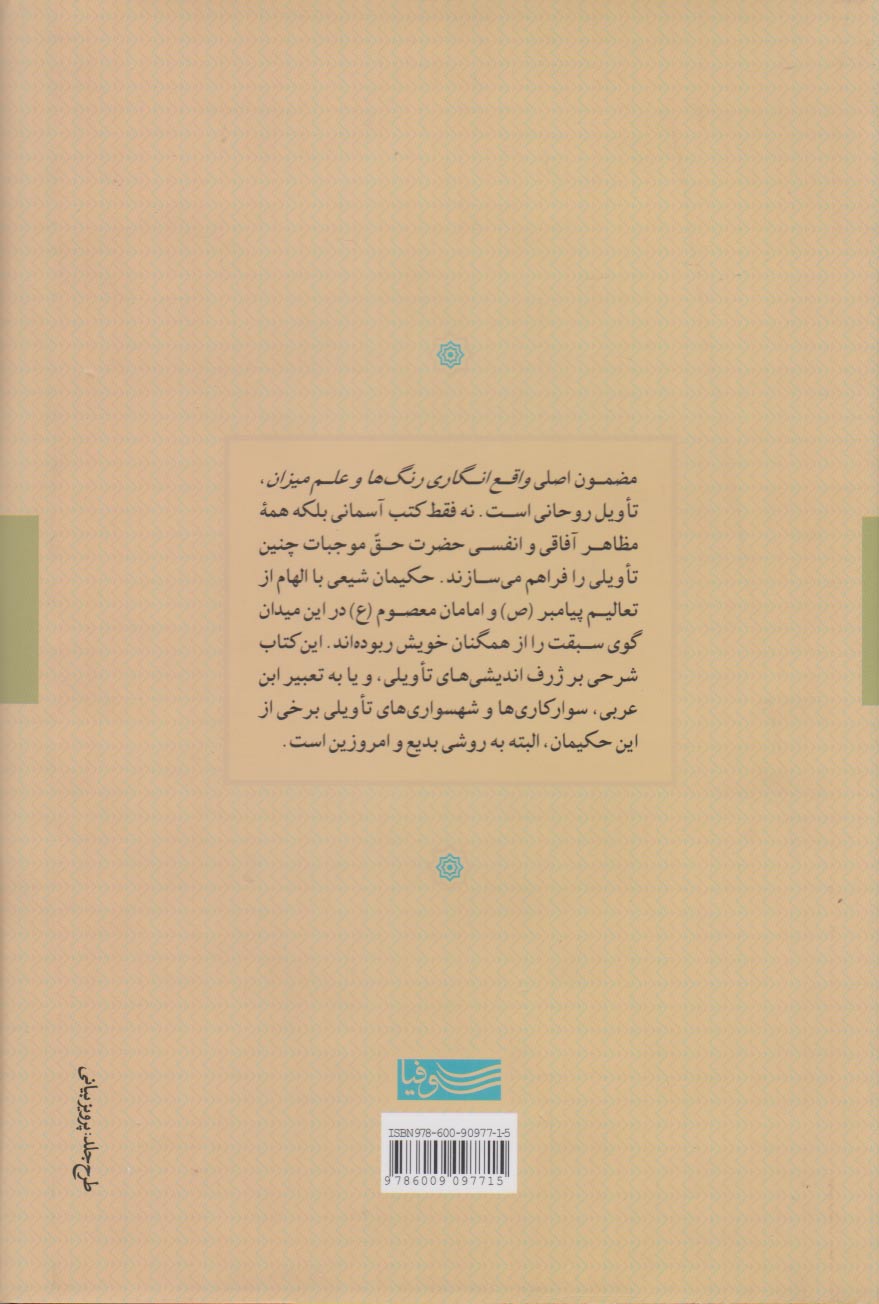 مضمون اصلی واقع‌انگاری رنگ‌ها و علم میزان،
تأویل روحانی است. نه فقط کتب آسمانی بلکه همهٔ
مظاهر آفاقی و انفسی حضرت حقّ موجبات چنین
تأویلی را فراهم می‌سازند. حکیمان شیعی با الهام از
تعالیم پیامبر (ص) و امامان معصوم (ع) در این میدان
گوی سبقت را از همگنان خویش ربوده‌اند. این کتاب
شرحی بر ژرف اندیشی‌های تأویلی، و یا به تعبیر ابن
عربی، سوارکاری‌ها و شهسواری‌های تأویلی برخی از
این حکیمان، البته به روشی بدیع و امروزین است.
سوفیا
ISBN 978-600-90977-1-5
9 786009 097715
طرح جلد: پرویز بیانی